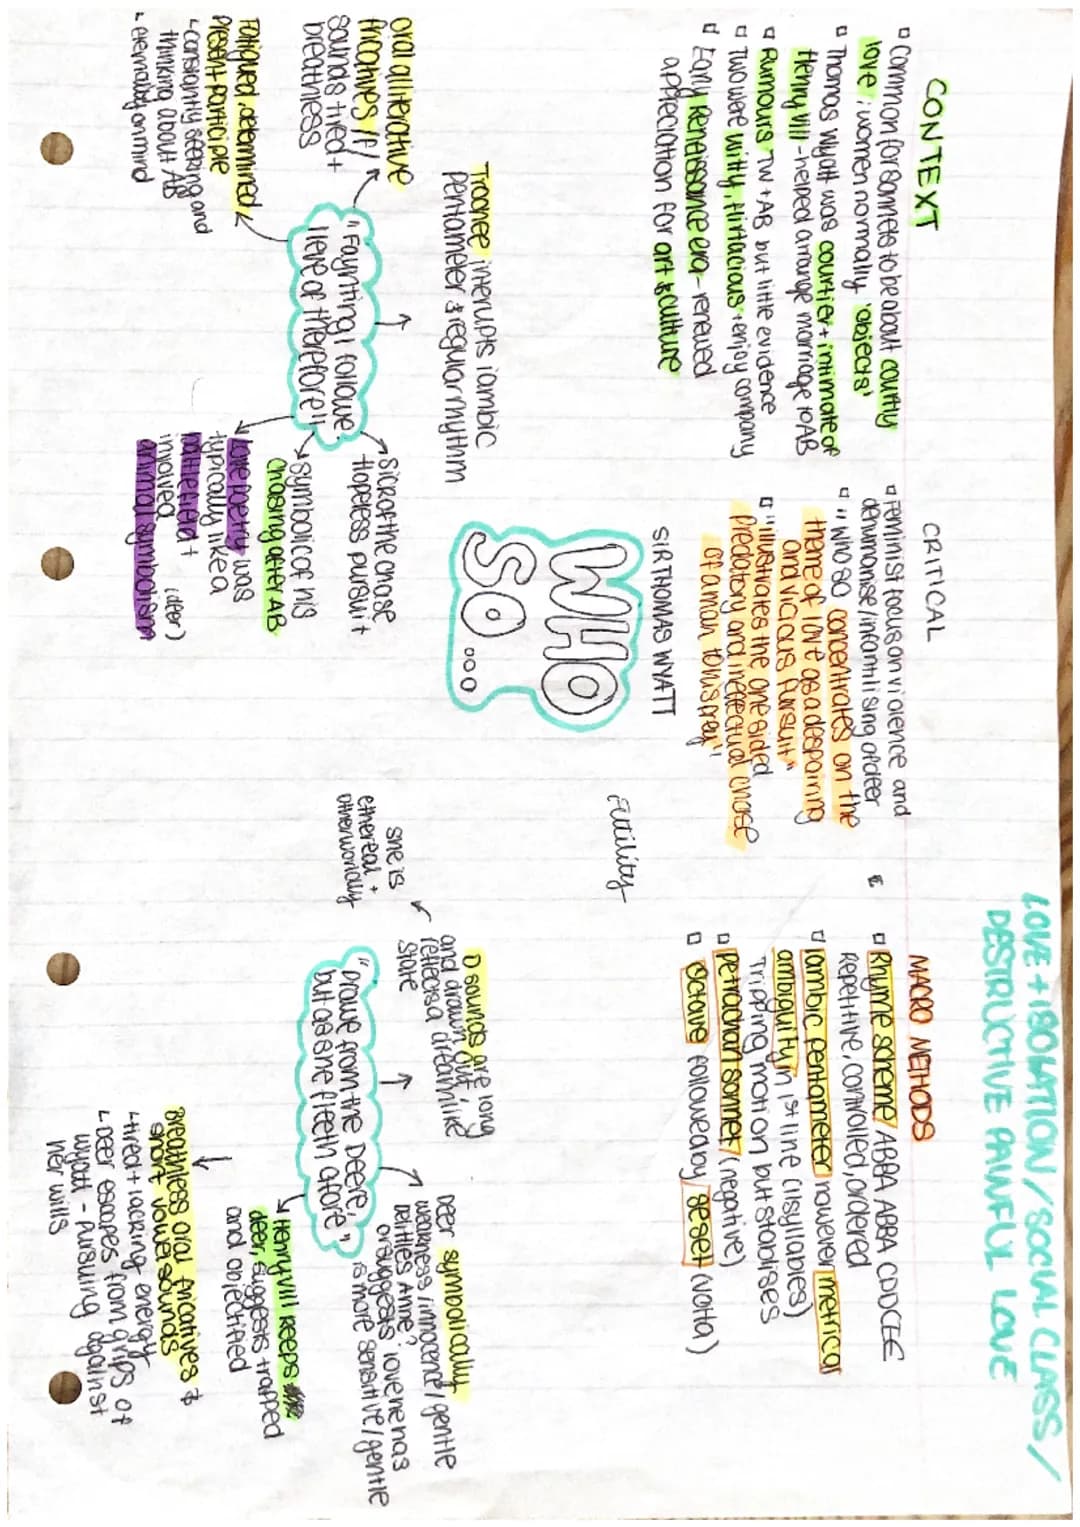 LOVE + ISOLATION / SOCIAL CLASS /
DESTRUCTIVE PAINFUL LOVE
CONTEXT
Common for sonnets to be about courtly
love; women normally 'objects'
Thomas Wyatt was courtier + intimate of
Henry VIII - helped arrange marriage to AB
Rumours TW + AB but little evidence
Two were witty, flirtacious + enjoy company
Early Renaissance era - renewed
appreciation for art & culture
CRITICAL
Feminist focus on violence and
dehumanise infantilising of deer
"Whoso concentrates on the
theme of love as a despairing
and vicious pursuit"
"illustrates the one sided
predatory and ineffectual chase
of a man to his prey"
MACRO METHODS
Rhyme scheme / ABBA ABBA CDDCEE
Repetitive, controlled, ordered
Iambic pentameter however metrical
ambiguity in 1st line (11 syllables)
Tripping motion but stabilises
Petrarchan sonnet (negative)
Octave followed by seset (volta)
SIR THOMAS WYATT
WHO
SO...
Futility
Trochee interupts iambic
pentameter & regular rhythm
"Faynting I followe
I leve of therefore"
oral alliterative
fricatives /f/
sounds tired +
breathless
Fatigued, determined
present participle
↳ constantly seeking and
thinking about AB
↳ eternally on mind
Sick of the chase
hopeless pursuit
Symbolic of his
chasing after AB
Love poetry was
typically like a
battlefield +
involved (deer)
animal symbolism
D sounds are long
and drawn out,
reflects a dreamlike
state
she is
ethereal +
otherworldly
"Drawe from the Deere,
but as she fleeth afore"
Deer symbolically
weakness / innocence / gentle
Belittles Anne?
or suggests love he has
is more sensitive / gentle
Henry VIII keeps
deer, suggests trapped
and objectified
Breathless oral fricatives &
short vowel sounds
↳ tired + lacking energy
↳ Deer escapes from grips of
Wyatt - pursuing against
her wills